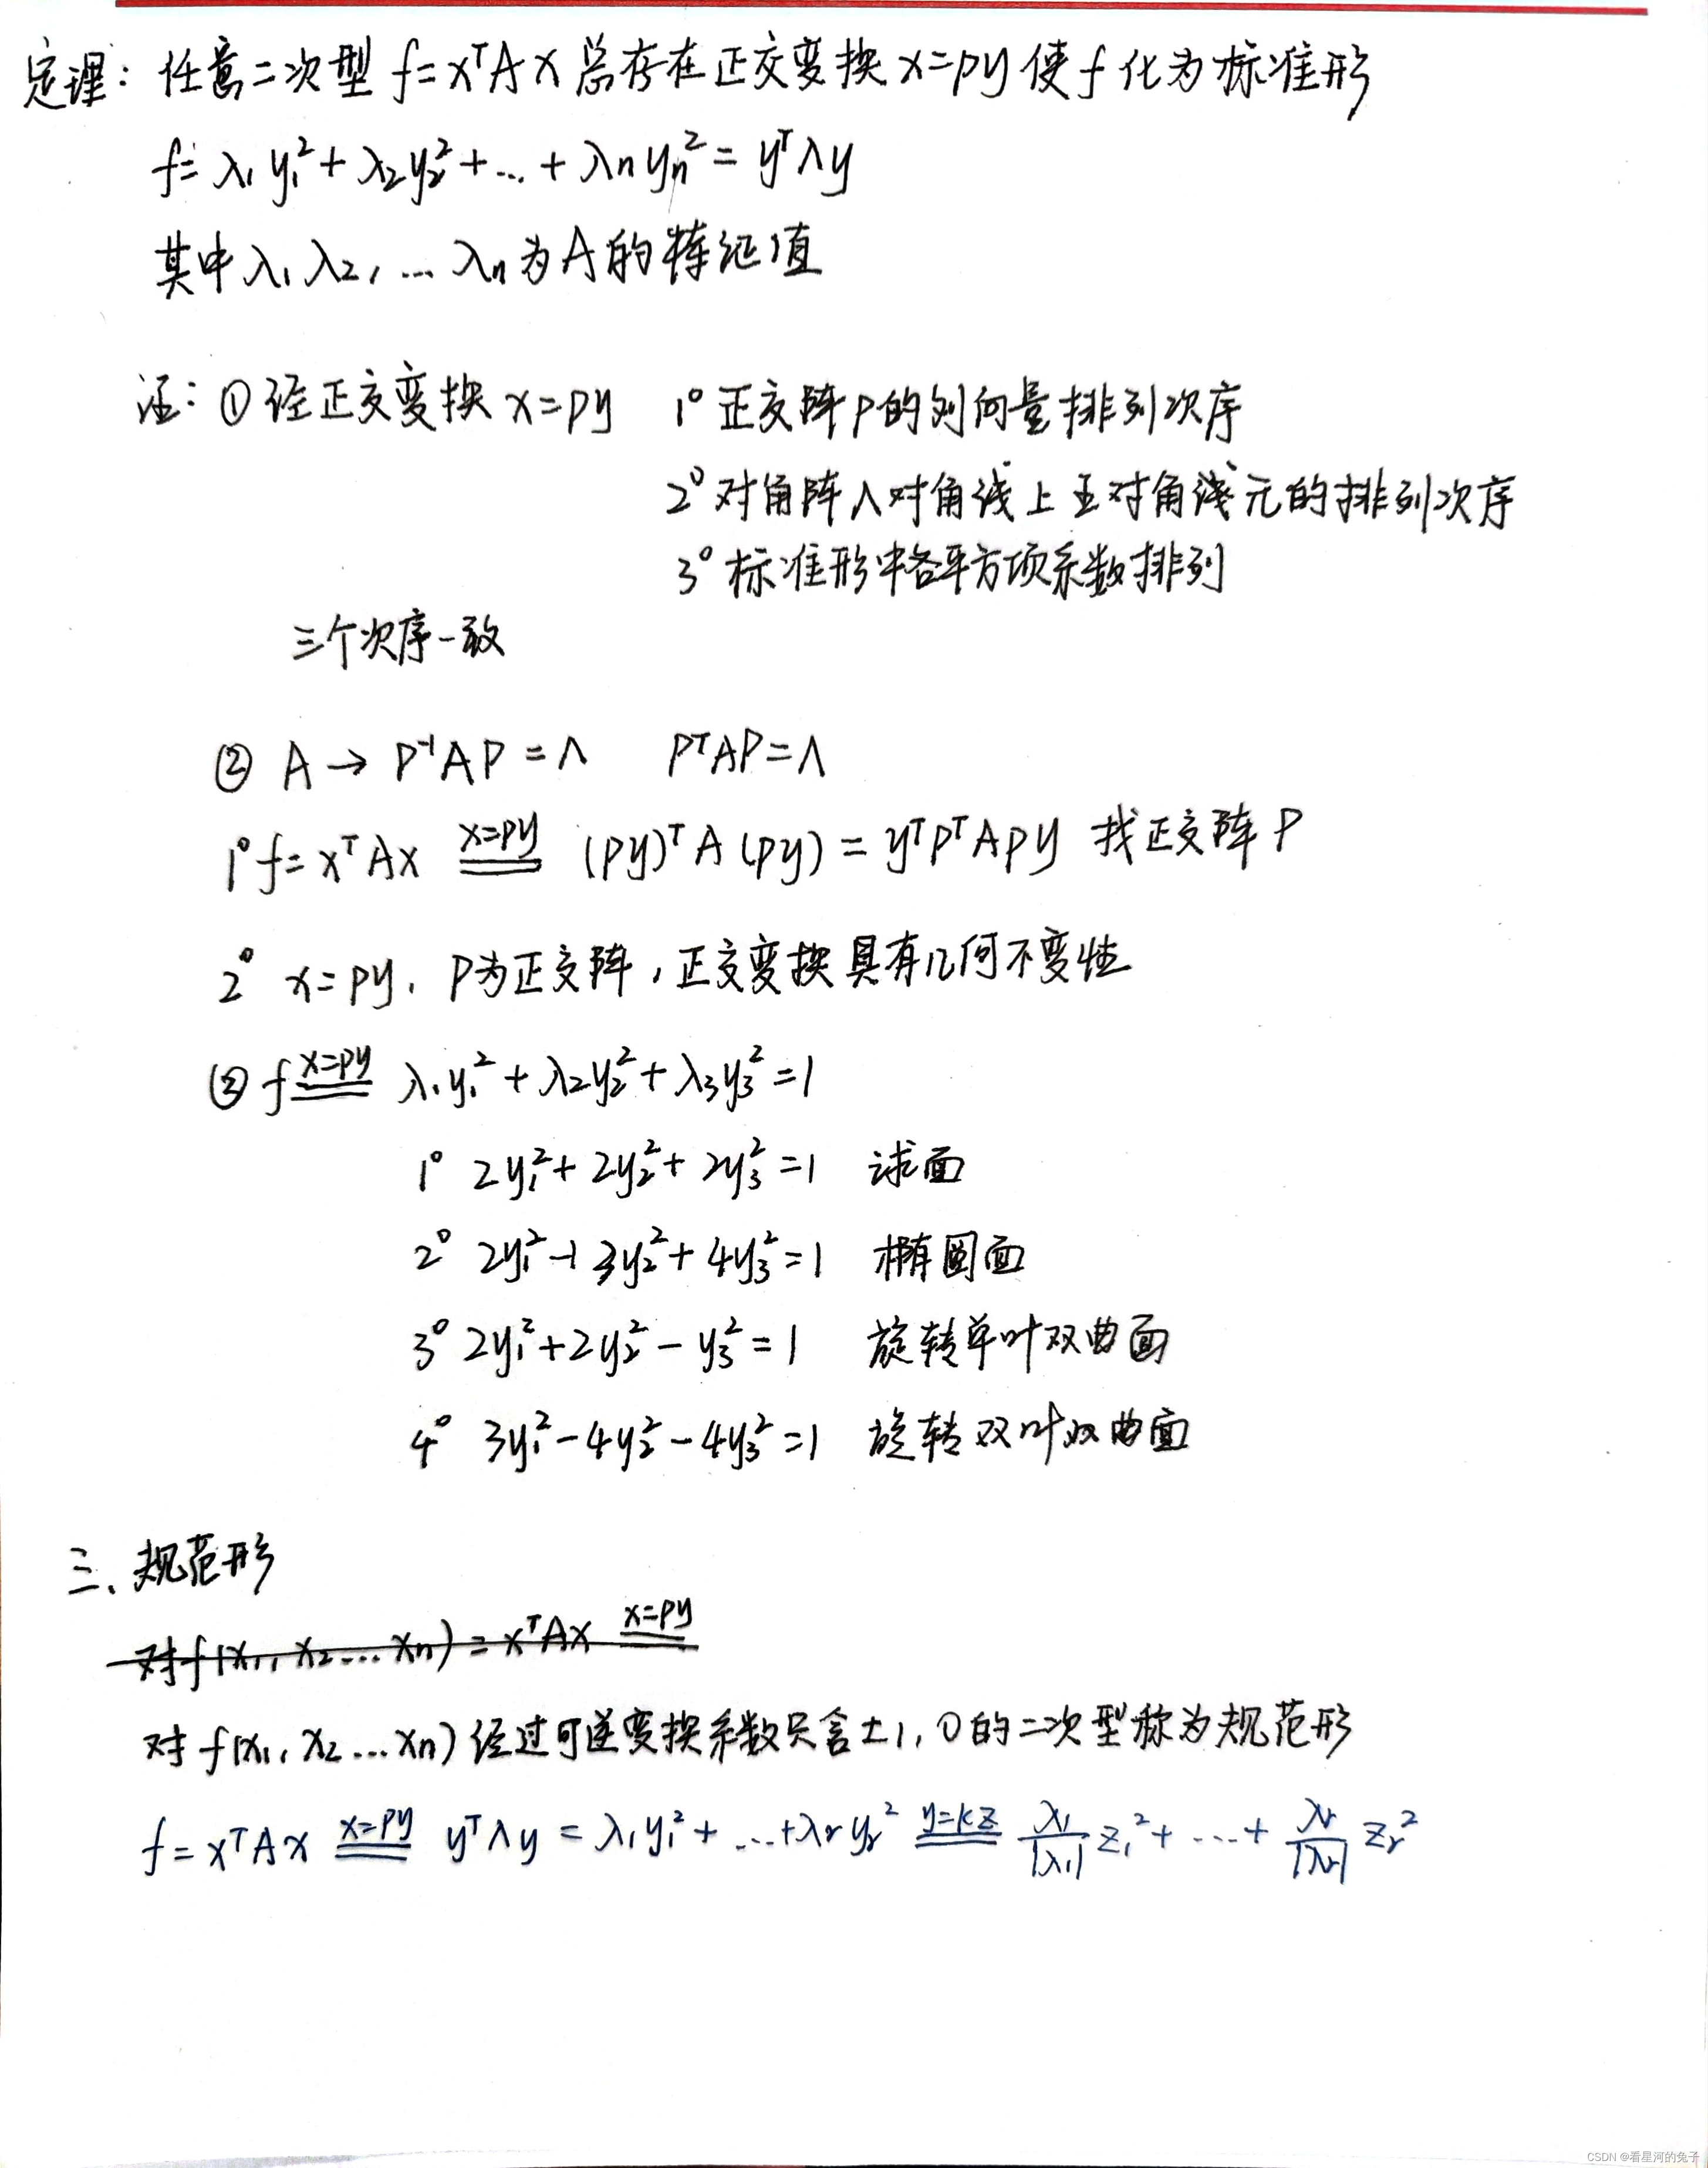 定理：任意二次型 f=xᵀAx 总存在正交变换 x=py 使f 化为标准形
f=λ₁y₁²+λ₂y₂²+...+λnyn²=yᵀΛy
其中λ₁λ₂,...λn为A的特征值
注：①经正交变换 x=py 1° 正交阵P的列向量排列次序
2° 对角阵Λ对角线上主对角线元的排列次序
3° 标准形中各平方项系数排列
三个次序一致
② A→P⁻¹AP=Λ PᵀAP=Λ
1° f=xᵀAx x=py (py)ᵀA(py)=yᵀPᵀAPy 找正交阵P
2° x=py, P为正交阵,正交变换具有几何不变性
③ f x=py λ₁y₁²+λ₂y₂²+λ₃y₃²=1
1° 2y₁²+2y₂²+2y₃²=1 球面
2° 2y₁²+3y₂²+4y₃²=1 椭圆面
3° 2y₁²+2y₂²-y₃²=1 旋转单叶双曲面
4° 3y₁²-4y₂²-4y₃²=1 旋转双叶双曲面
三、规范形
对f(x₁,x₂...xn)=xᵀAx x=py
对f(x₁,x₂...xn)经过可逆变换系数只含±1,0的二次型称为规范形
f=xᵀAx x=py yᵀΛy=λ₁y₁²+...+λryr² y=kz λ₁/|λ₁| z₁²+...+λr/|λr| zr²
CSDN @看星河的兔子